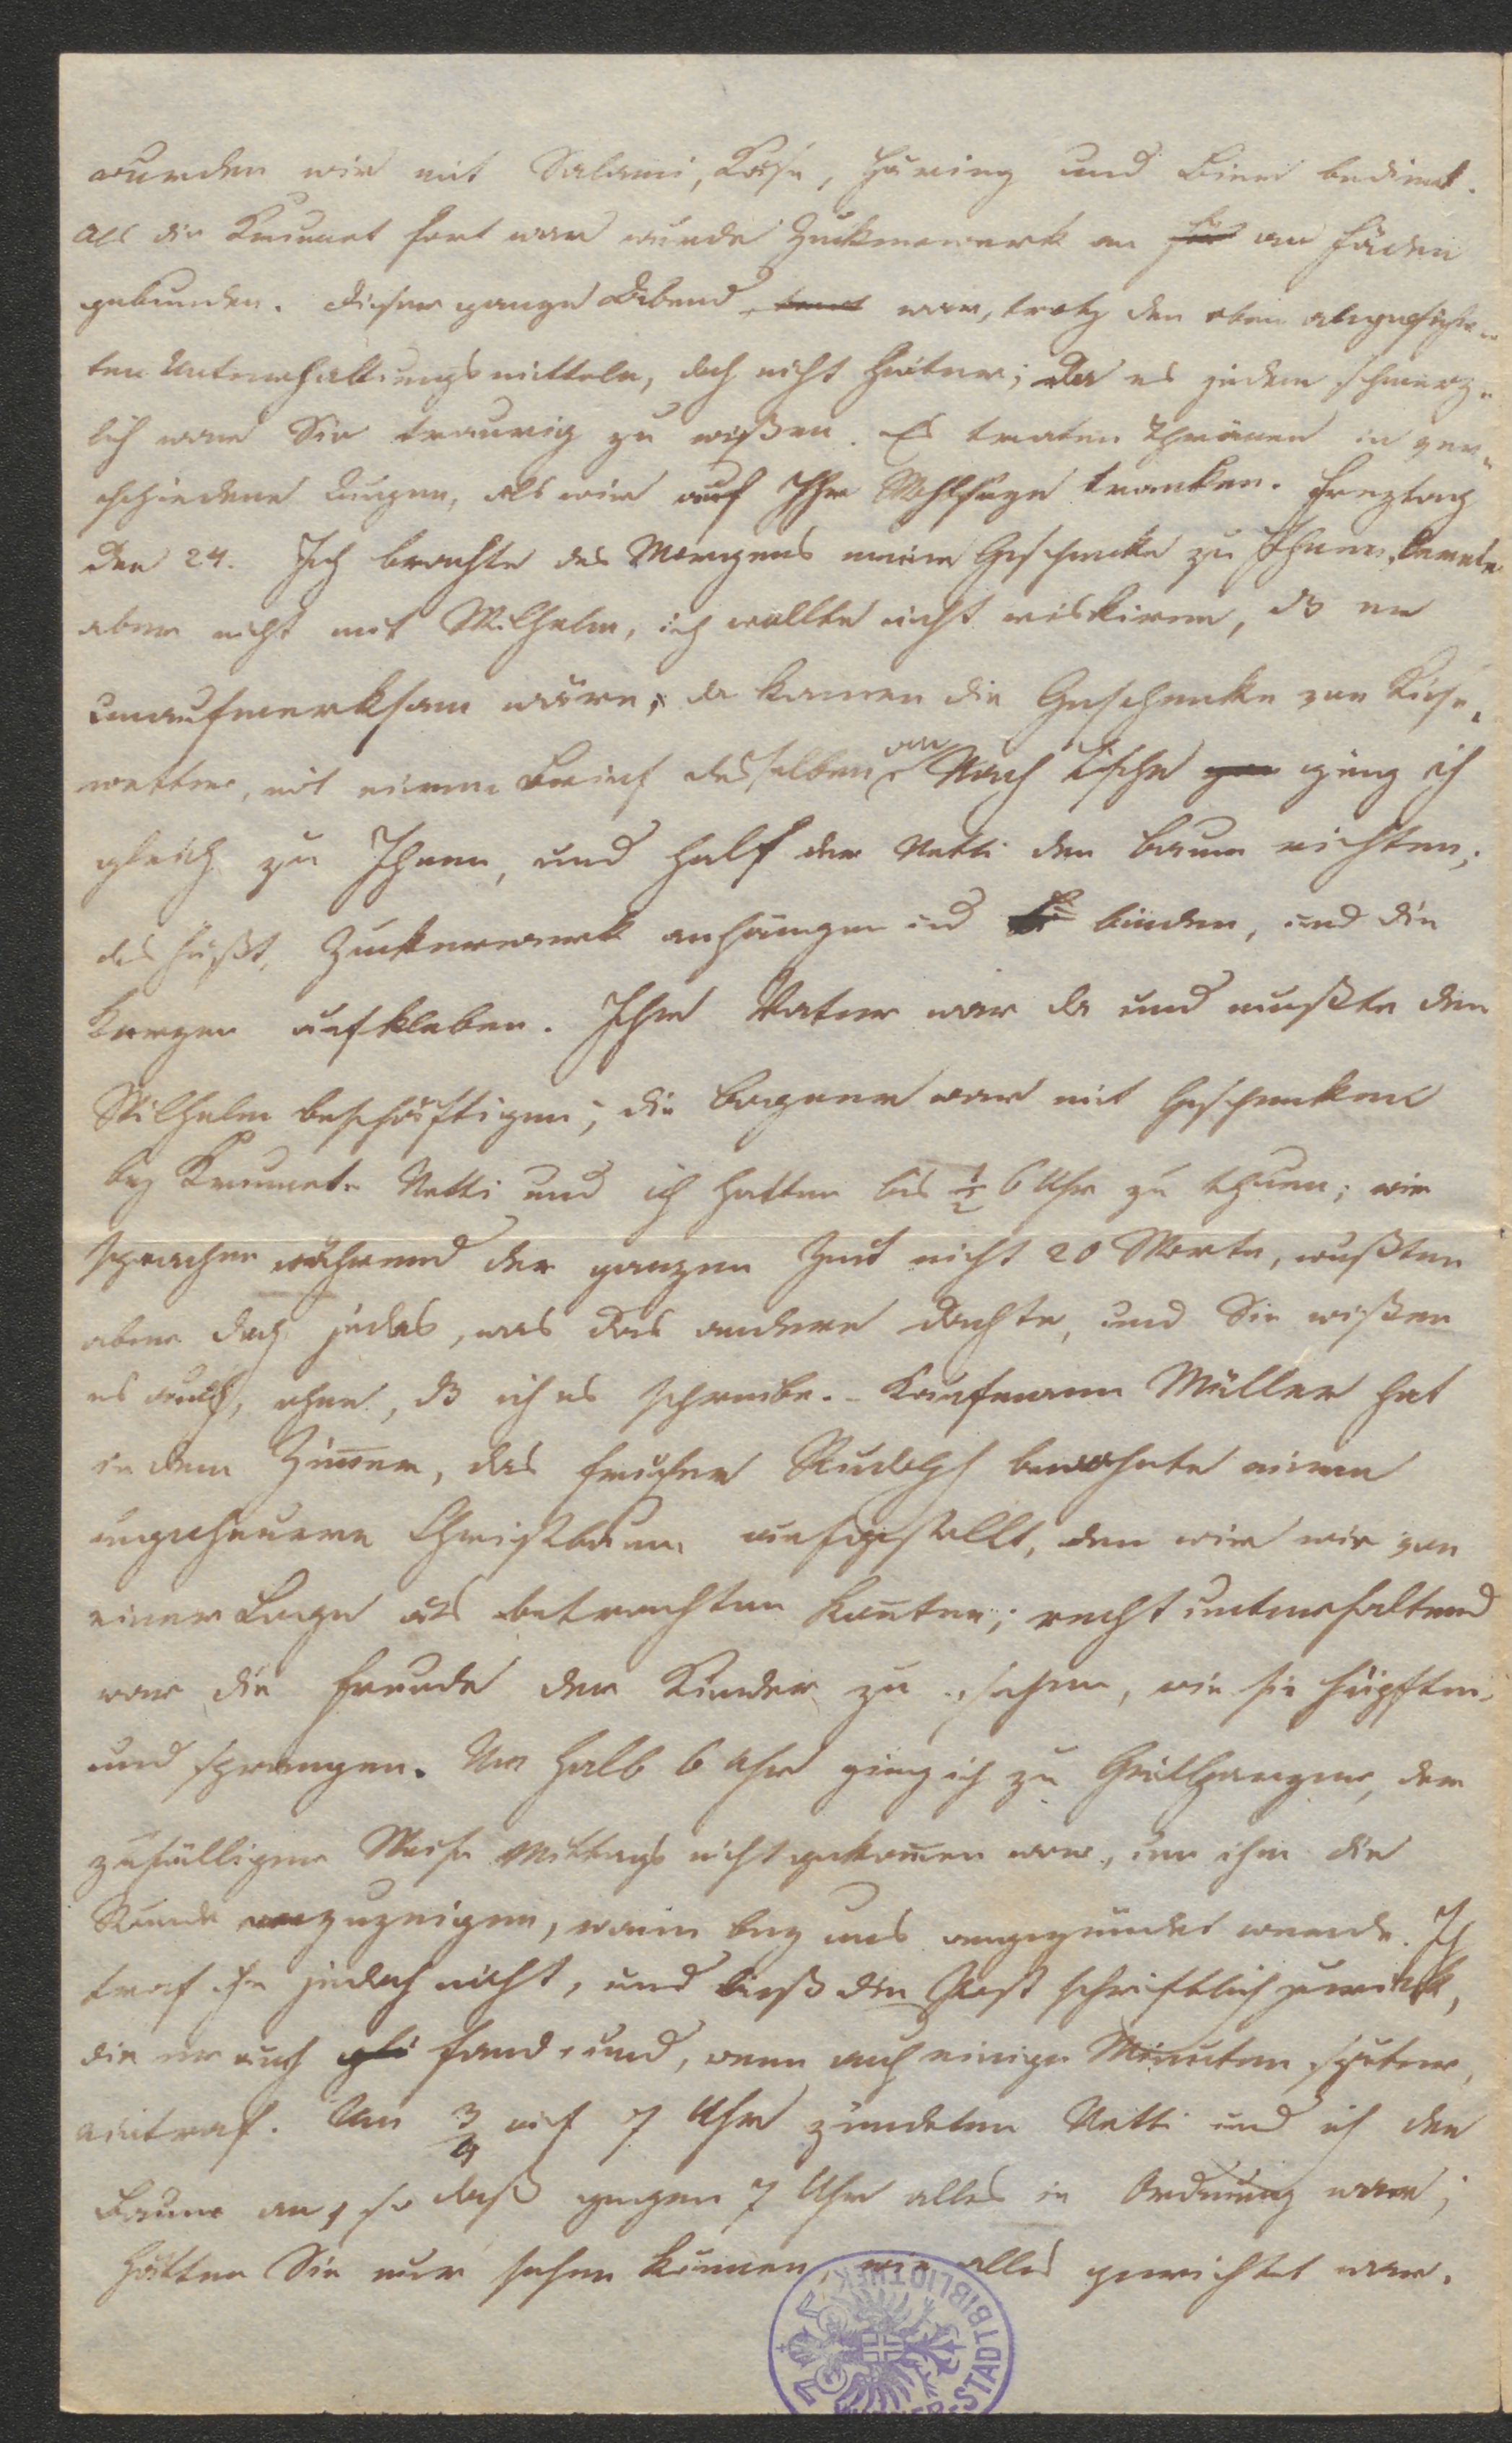 wurden wir mit Salami, Käse, Häring und Bier bedient.
Als die Krumet fort war wurde Zuckerwerk an für an Fäden
gebunden. Dieser ganze Abend war, trotz den oben angeführ-
ten Unterhaltungsmitteln, doch nicht heiter; da es jedem schmerz-
lich war Sie traurig zu wißen. Es traten Thränen in ver-
schiedene Augen, als wir auf Ihr Wohlseyn tranken. Freytag
den 24. Ich brachte des Morgens meine Geschenke zu Ihnen, lernte
aber nicht mit Wilhelm, ich wollte nicht riskiren, dß er
unaufmerksam wäre, da kamen die Geschenke von Kiese-
wetter, mit einem Brief desselben an. Nach Tische ging ich
gleich zu Ihnen, und half der Netti den Baum richten;
das heißt, Zuckerwerk anhängen und binden, und die
Kerzen aufkleben. Ihr Vater war da und mußte den
Wilhelm beschäftigen; die Bogner war mit Geschenken
bey Krumet. Netti und ich hatten bis ½ 6 Uhr zu thuen; wir
sprachen während der ganzen Zeit nicht 20 Worte, wußten
aber doch jedes, was das andere dachte, und Sie wißen
es auch, ohne, dß ich es schreibe. – Kaufmann Müller hat
in dem Zimmer, das früher Rudolph bewohnte einen
ungeheuern Christbaum aufgestellt, den wir wir von
einer Loge aus betrachten konnten; recht unterhaltend
war die Freude der Kinder zu sehen, wie sie hüpften
und sprangen. Um halb 6 Uhr ging ich zu Grillparzer, der
zufälliger Weise Mittags nicht gekommen war, um ihm die
Stunde anzuzeigen, wann bey uns angezündet werde. Ich
traf ihn jedoch nicht, und ließ die Post schriftlich zurück,
die er auch gli fand, und, wenn auch einige Minuten später,
eintraf. Um 3/4 auf 7 Uhr zündeten Netti und ich den
Baum an, so daß gegen 7 Uhr alles in Ordnung war;
hätten Sie nur sehen können, wie alles gerichtet war.
STADTBIBLIOTHEK